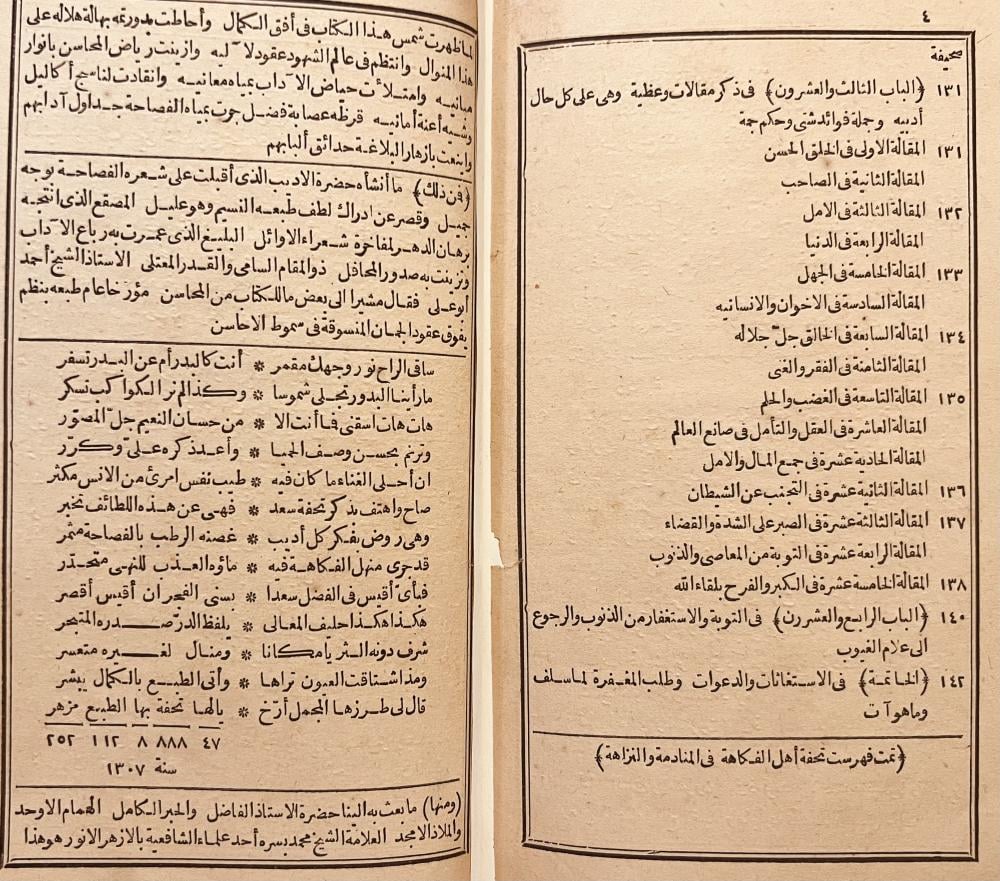 ٤
صحيفة
١٣١ ﴿الباب الثالث والعشرون﴾ فى ذكر مقالات وعظية وهى على كل حال
أدبيه وجملة فوائد شتى وحكم جمة
١٣١ المقالة الاولى فى الخلق الحسن
المقالة الثانية فى الصاحب
١٣٢ المقالة الثالثة فى الامل
المقالة الرابعة فى الدنيا
١٣٣ المقالة الخامسة فى الجهل
المقالة السادسة فى الاخوان والانسانيه
١٣٤ المقالة السابعة فى الخالق جلّ جلاله
المقالة الثامنة فى الفقر والغى
١٣٥ المقالة التاسعة فى الغضب والحلم
المقالة العاشرة فى العقل والتأمل فى صانع العالم
المقالة الحادية عشرة فى جمع المال والامل
١٣٦ المقالة الثانية عشرة فى التجنب عن الشيطان
١٣٧ المقالة الثالثة عشرة فى الصبر على الشدة والقضاء
المقالة الرابعة عشرة فى التوبة من المعاصى والذنوب
١٣٨ المقالة الخامسة عشرة فى الكبر والفرح بلقاء الله
١٤٠ ﴿الباب الرابع والعشرون﴾ فى التوبة والاستغفار من الذنوب والرجوع
الى علام الغيوب
١٤٢ ﴿الخاتمة﴾ فى الاستغاثات والدعوات وطلب المغفرة لما سلف
وما هو آت
﴿تمت فهرست تحفة أهل الفكاهة فى المنادمة والنزاهة﴾
لما ظهرت شمس هذا الكتاب فى أفق الكمال وأحاطت بدورتمه بهالة هلاله على
هذا المنوال وانتظم فى عالم الشهود عقود لآليه وازينت رياض المحاسن بانوار
مبانيه وامتلأت حياض الآداب بمياه معانيه وانقادت لناسج أكاليل
وشيه أعنة أمانيه قرظه عصابة فضل جرت بمياه الفصاحة جداول آدابهم
واينعت بازهار البلاغة حدائق ألبابهم
﴿فن ذلك﴾ ما أنشأه حضرة الاديب الذى أقبلت على شعره الفصاحة بوجه
جميل وقصر عن ادراك لطف طبعه النسيم وهو عليل المصقع الذى انتجه
برهان الدهر لمفاخرة شعراء الاوائل البليغ الذى عمرت به رباع الآداب
وتزينت به صدور المحافل ذو المقام السامى والقدر المعتلى الاستاذ الشيخ أحمد
أبو على فقال مشيرا الى بعض ما للكتاب من المحاسن مؤرخا عام طبعه بنظم
يفوق عقود الجمان المنسوقة فى سموط الاحاسن
ساقى الراح نور وجهك مقمر * أنت كالبدر أم عن البدر تسفر
ما رأينا البدور تجلى شموسا * وكذا لم نر الكواكب تسكر
هات هات اسقنى فما أنت الا * من حسان النعيم جلّ المصوّر
وترنم بحسن وصف الحميا * وأعد ذكره علىّ وكرّر
ان أحلى الغناء ما كان فيه * طيب نفس امرئ من الانس مكثر
صاح واهتف بذكر تحفة سعد * فهى عن هذه اللطائف تخبر
وهى روض بفكر كل أديب * غصنه الرطب بالفصاحة مثمر
قد جرى منهل الفكاهة فيه * ماؤه العذب للنهى متحدّر
فبأىّ أقيس فى الفضل سعدا * بسنى الفجر ان أقيس أقصر
هكذا هكذا حليف المعالى * يلفظ الدرّ صدره المتبحر
شرف دونه الثريا مكانا * ومنال لغيره متعسر
ومذ اشتاقت العيون تراها * وأتى الطبع بالكمال يبشر
قال لى طرزها المجمل أرّخ * يالها تحفة بها الطبع مزهر
٤٧ ٨٨٨ ٨ ١١٢ ٢٥٢
سنة ١٣٠٧
﴿ومنها﴾ ما بعث به الينا حضرة الاستاذ الفاضل والحبر الكامل الهمام الاوحد
والملاذ الامجد العلامة الشيخ محمد بسره أحد علماء الشافعية بالازهر الانور هو هذا